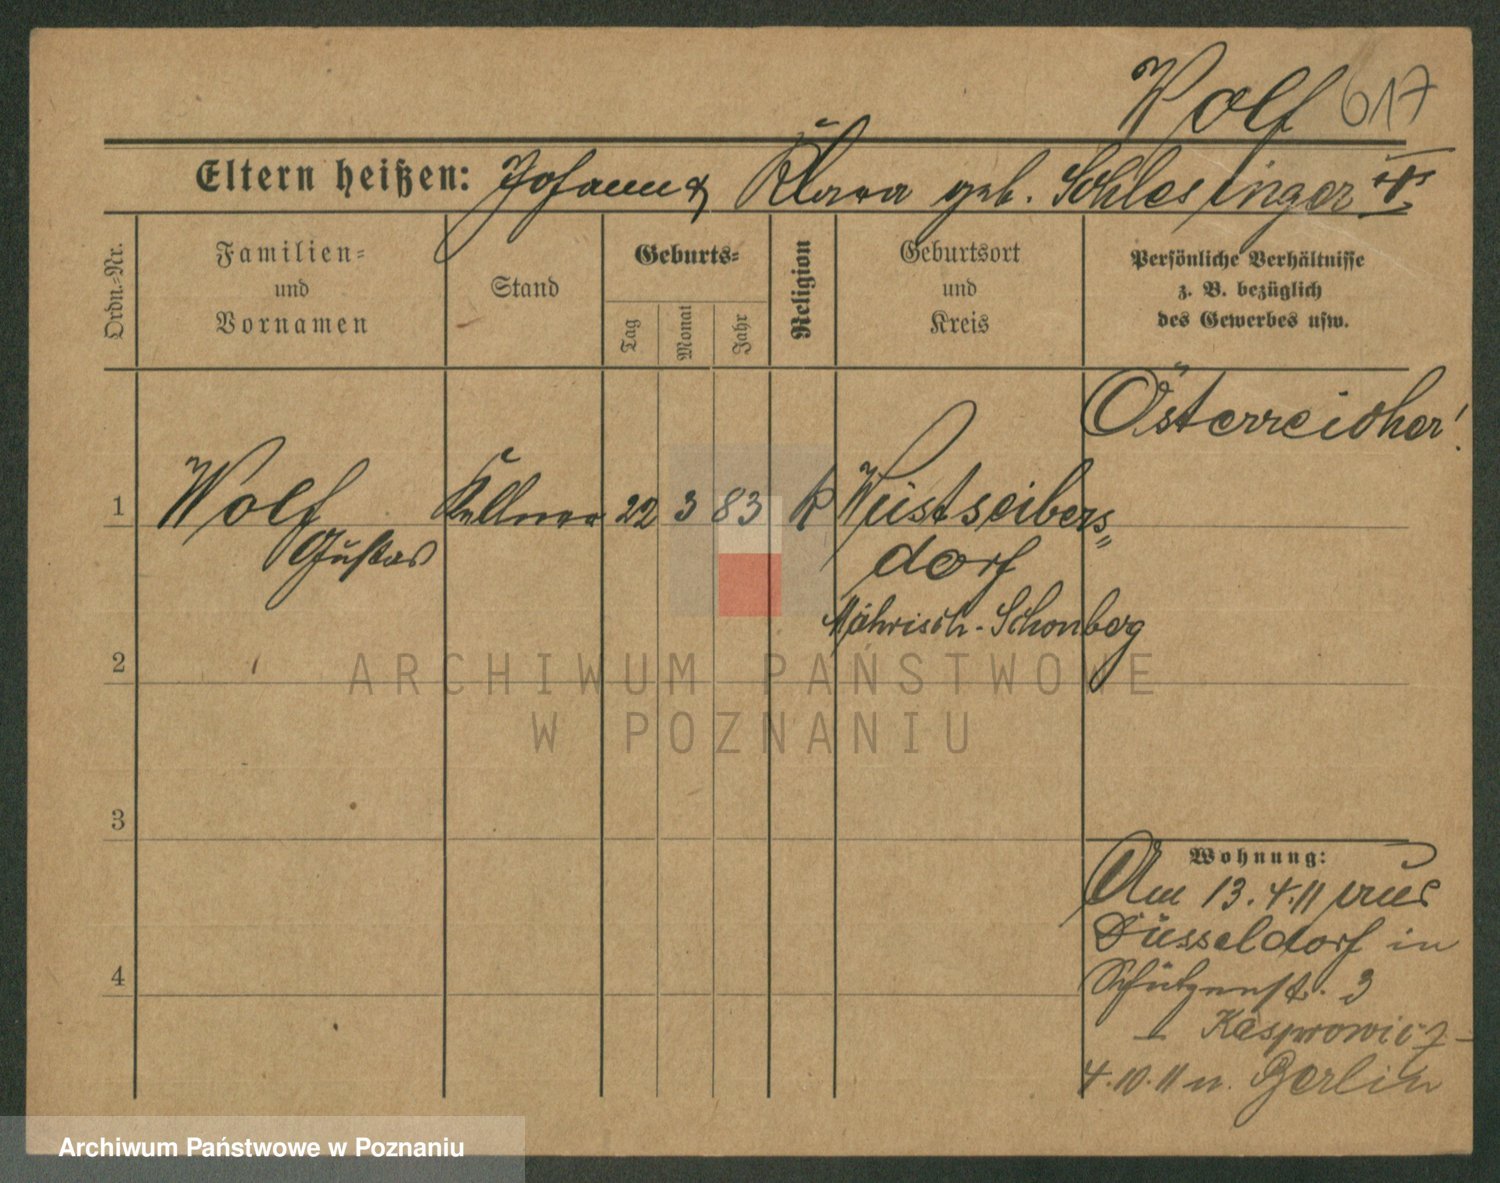 Wolf 617
Eltern heißen: Johann & Klara geb. Schlesinger
Ordn.-Nr.
Familien-
und
Vornamen
Stand
Geburts-
Tag
Monat
Jahr
Religion
Geburtsort
und
Kreis
Persönliche Verhältnisse
z. B. bezüglich
des Gewerbes usw.
Österreicher!
1 Wolf Kellner 22 3 83 K Wüstseibers-
Gustav dorf
Mährisch-Schönberg
2
ARCHIWUM PAŃSTWOWE
W POZNANIU
3
Wohnung:
Am 13.4.11 aus
Düsseldorf in
4
Schützenstr. 3
I Kasprowicz -
4.10.11 n. Berlin
Archiwum Państwowe w Poznaniu